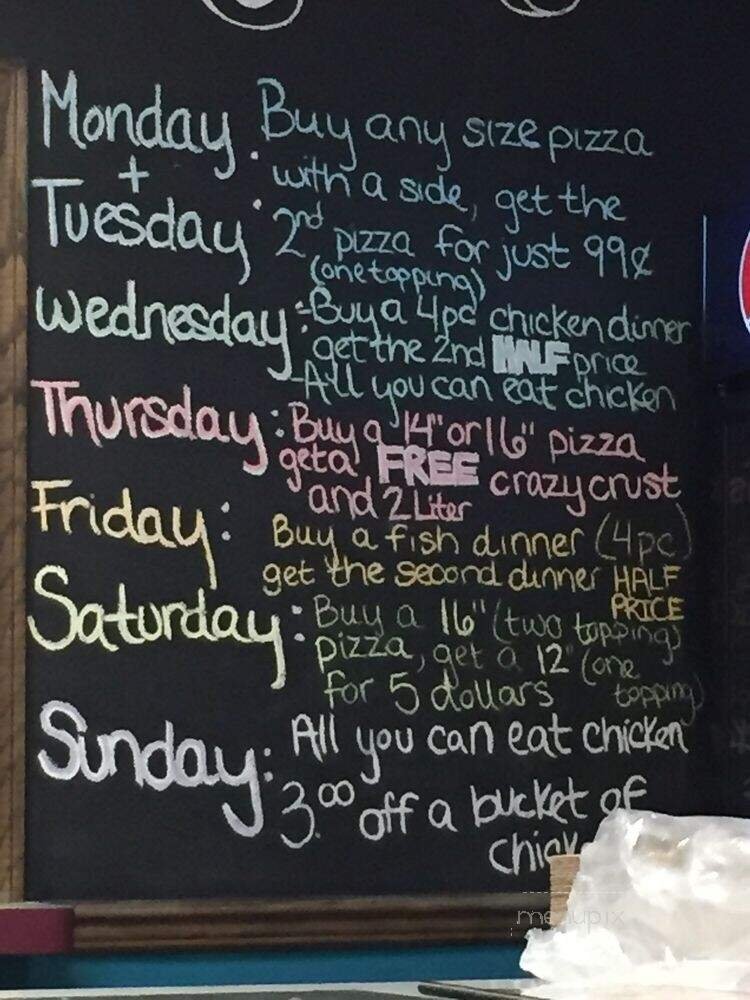 Monday: Buy any size pizza
+ with a side, get the
Tuesday 2nd pizza for just 99¢
(one topping)
Wednesday: -Buy a 4pc chicken dinner
get the 2nd HALF price
-All you can eat chicken
Thursday: Buy a 14" or 16" pizza
get a FREE crazy crust
and 2 Liter
Friday: Buy a fish dinner (4pc)
get the second dinner HALF
PRICE
Saturday: Buy a 16" (two topping)
pizza, get a 12" (one
for 5 dollars topping)
Sunday: All you can eat chicken
3.00 off a bucket of
menupix